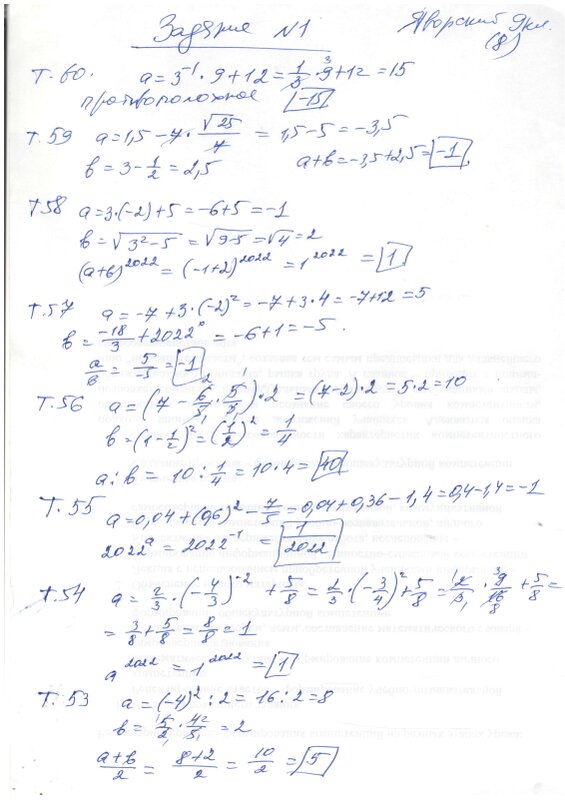 Задание №1
Яворский 9кл.
(8)
Т.60. a=3⁻¹·9+12=1/3·9+12=15
противоположное -15
Т.59 a=1,5-7·√25/7=1,5-5=-3,5
b=3-1/2=2,5 a+b=-3,5+2,5=-1
Т58 a=3·(-2)+5=-6+5=-1
b=√3²-5=√9-5=√4=2
(a+b)²⁰²²=(-1+2)²⁰²²=1²⁰²²=1
Т.57 a=-7+3·(-2)²=-7+3·4=-7+12=5
b=-18/3+2022⁰=-6+1=-5.
a/b=5/-5=-1
Т.56 a=(7-6/5·5/3)·2=(7-2)·2=5·2=10
b=(1-1/2)²=(1/2)²=1/4
a:b=10:1/4=10·4=40
Т.55 a=0,04+(0,6)²-7/5=0,04+0,36-1,4=0,4-1,4=-1
2022ᵃ=2022⁻¹=1/2022
Т.54 a=2/3·(-4/3)⁻²+5/8=2/3·(-3/4)²+5/8=2/3·9/16+5/8=
=3/8+5/8=8/8=1
a²⁰²²=1²⁰²²=1
Т.53 a=(-4)²:2=16:2=8
b=5/2·4/5=2
a+b/2=8+2/2=10/2=5